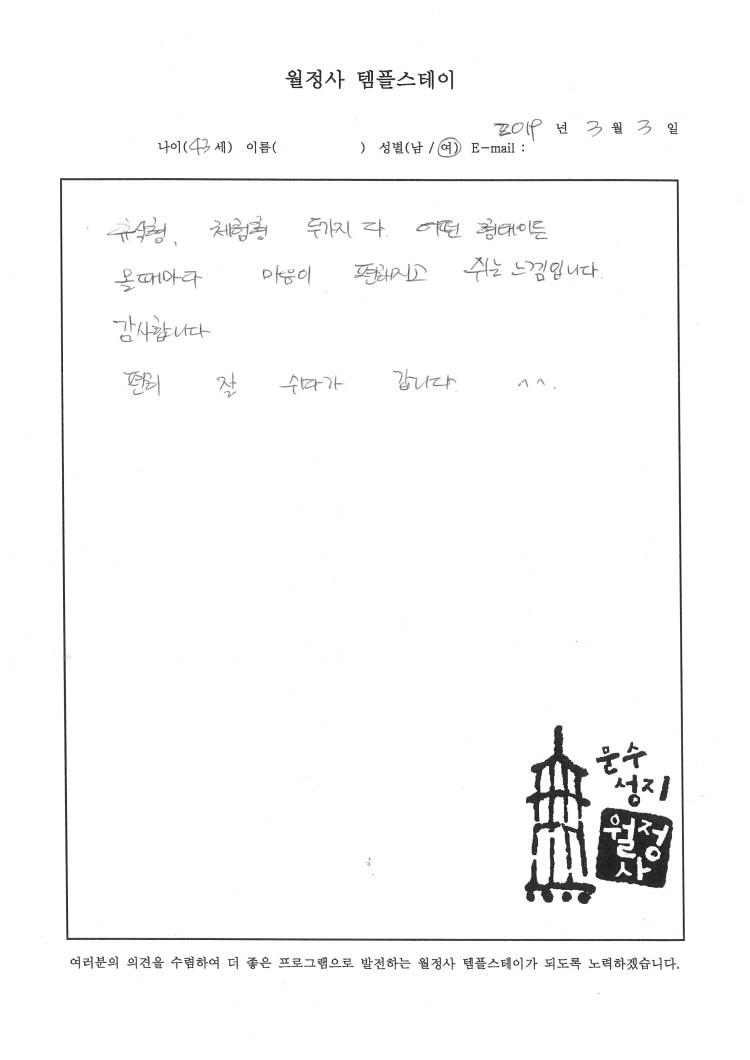 월정사 템플스테이
2019 년 3 월 3 일
나이(43 세) 이름( ) 성별(남 / 여) E-mail :
휴식형, 체험형 두가지 다. 어떤 형태이든
올때마다 마음이 편해지고 쉬는 느낌입니다.
감사합니다
편히 잘 쉬다가 갑니다. ^^.
문수
성지
월정
사
여러분의 의견을 수렴하여 더 좋은 프로그램으로 발전하는 월정사 템플스테이가 되도록 노력하겠습니다.